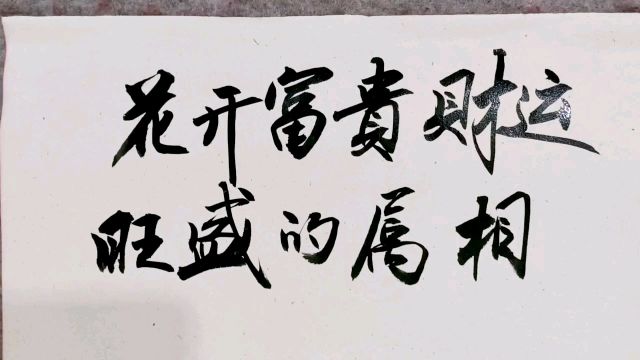 花开富貴财运
旺盛的属相